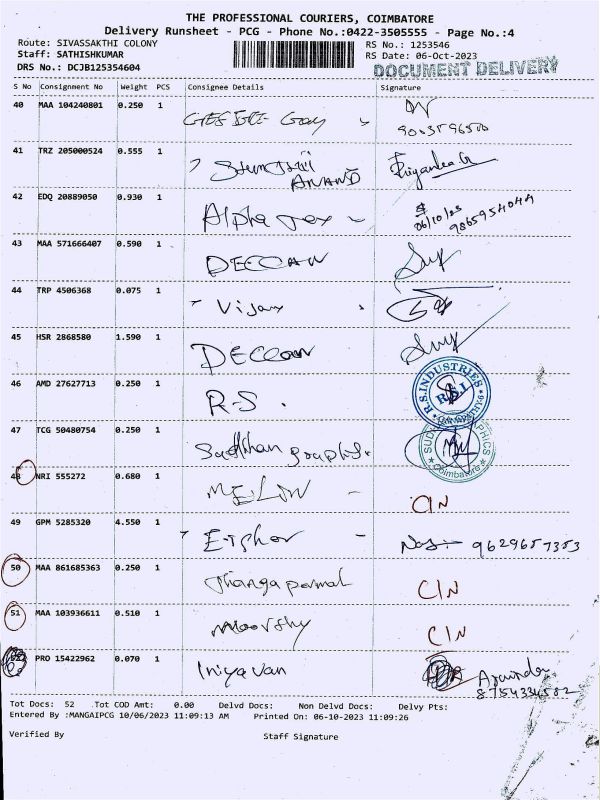 THE PROFESSIONAL COURIERS, COIMBATORE
Delivery Runsheet - PCG - Phone No.:0422-3505555 - Page No.:4
Route: SIVASSAKTHI COLONY RS No.: 1253546
Staff: SATHISHKUMAR RS Date: 06-Oct-2023
DRS No.: DCJB125354604 DOCUMENT DELIVERY
S No Consignment No Weight PCS Consignee Details Signature
40 MAA 104240801 0.250 1
41 TRZ 205000524 0.555 1 ANAND Priyanka G
42 EDQ 20889050 0.930 1 Alpha Tex 06/10/23 9865954044
43 MAA 571666407 0.590 1 DECCAN
44 TRP 4506368 0.075 1 Vijay
45 HSR 2868580 1.590 1 DECCAN
46 AMD 27627713 0.250 1 R-S. R.S.INDUSTRIES R.S.I
47 TCG 50480754 0.250 1 Coimbatore
48 NRI 555272 0.680 1 CIN
49 GPM 5285320 4.550 1 9629657353
50 MAA 861685363 0.250 1 Thanga permal CIN
51 MAA 103936611 0.510 1 Moorthy CIN
52 PRO 15422962 0.070 1 Iniyavan Aravinder
8754334582
Tot Docs: 52 Tot COD Amt: 0.00 Delvd Docs: Non Delvd Docs: Delvy Pts:
Entered By :MANGAIPCG 10/06/2023 11:09:13 AM Printed On: 06-10-2023 11:09:26
Verified By Staff Signature